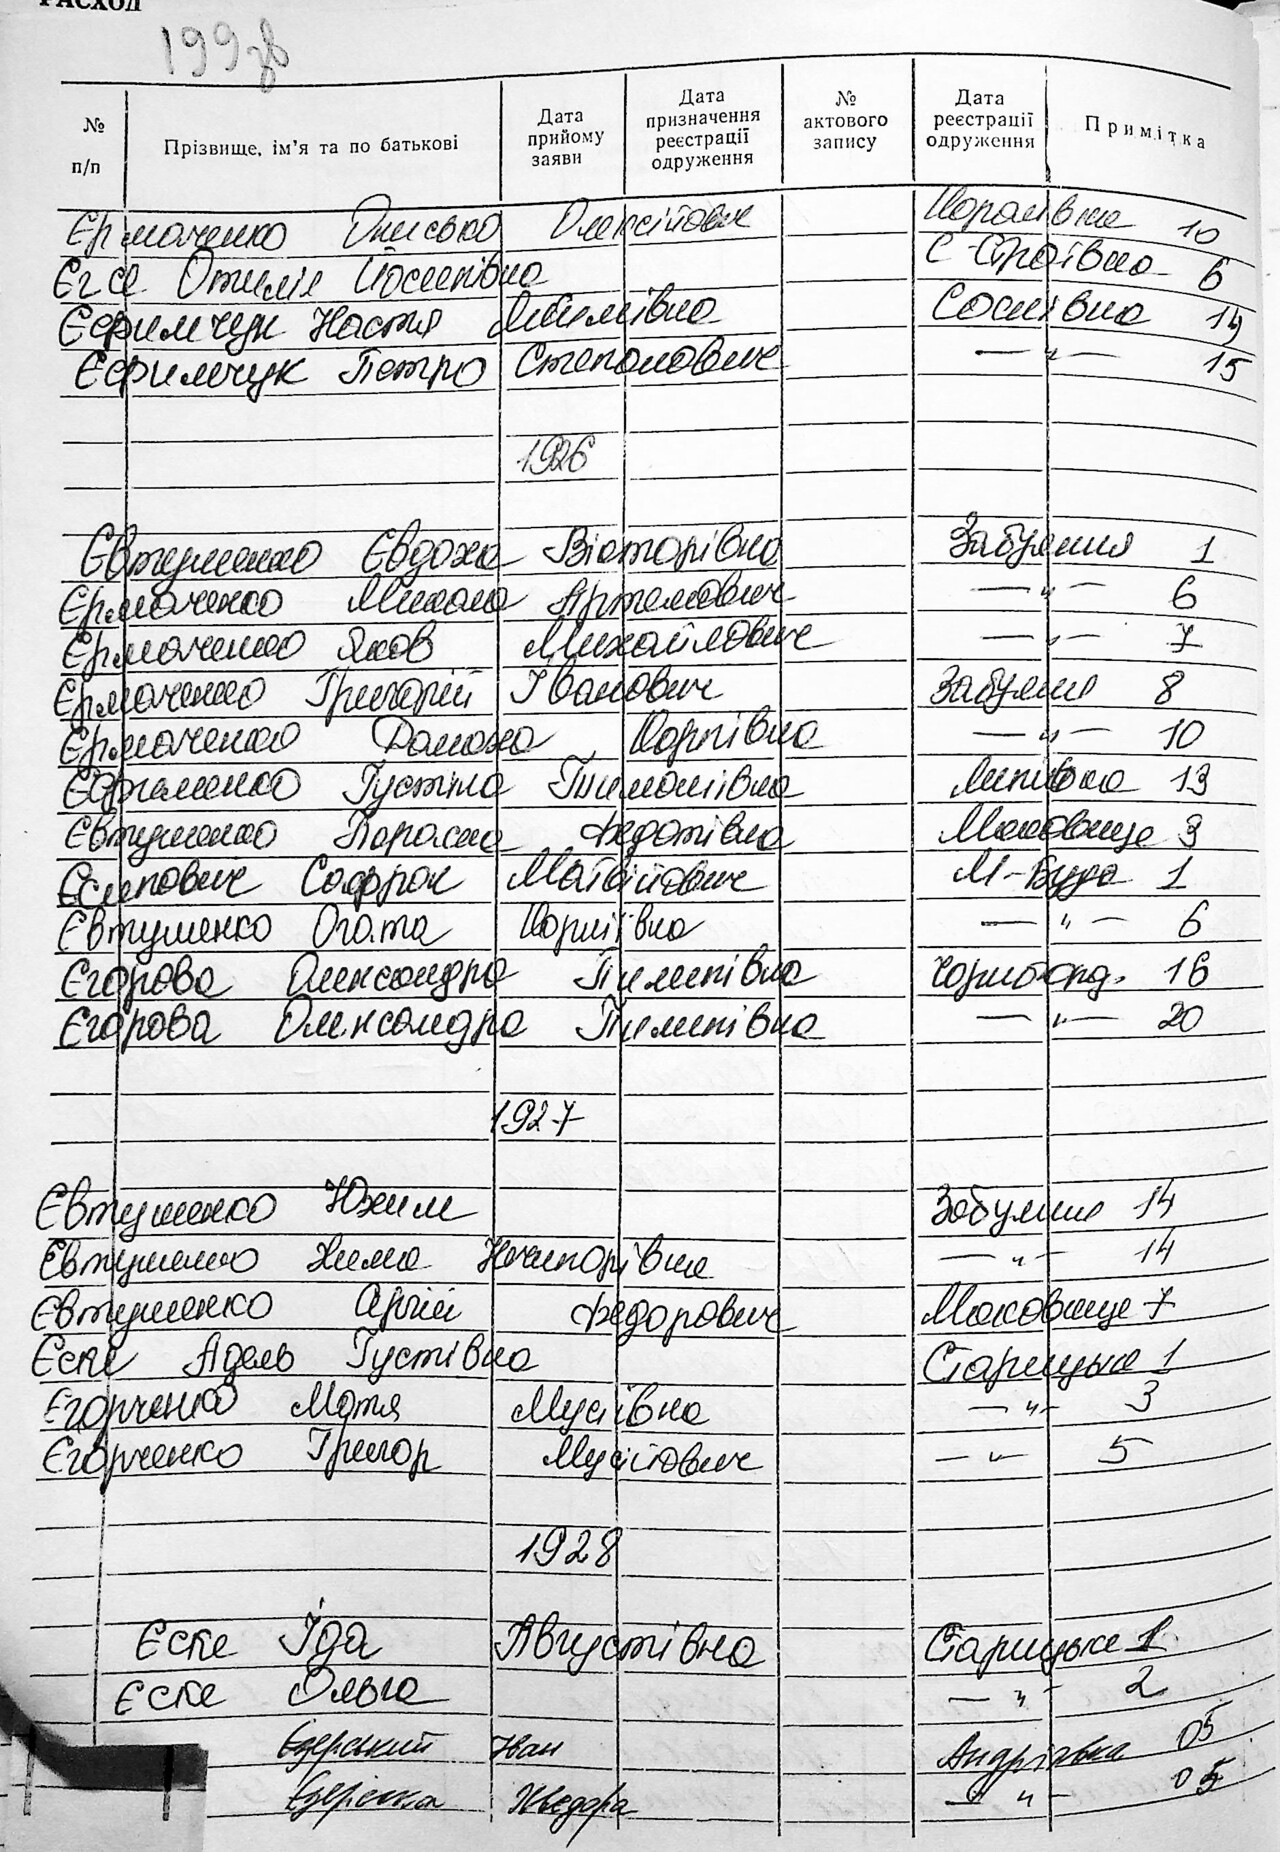 РАСХОД
199зв
№ п/п Прізвище, ім'я та по батькові Дата прийому заяви Дата призначення реєстрації одруження № актового запису Дата реєстрації одруження Примітка
Єрмаченко Онисько Олексійович 10
Єгсе Отилія Йосипівна С-Строївка 6
Єфимчук Настя Соснівка 14
Єфимчук Петро Степанович — " — 15
1926
Євтушенко Євдоха Вікторівна Забуяння 1
Єрмаченко Микола Артемович — " — 6
Єрмаченко Яков Михайлович — " — 7
Єрмаченко Григорій Іванович Забуяння 8
Єрмаченко Домаха Карпівна — " — 10
Єфременко Густина Тимошівна Липівка 13
Євтушенко Параска Федотівна Маковище 3
Єсипович Софрон Матвійович М-Буда 1
Євтушенко Огата Корніївна — " — 6
Єгорова Олександра Пилипівна 16
Єгорова Олександра Пилипівна — " — 20
1927
Євтушенко Юхим Забуяння 14
Євтушенко Хима Ничипорівна — " — 14
Євтушенко Федорович Маковище 7
Єске Адель Густівна Старицька 1
Єгорченко Мотя Мусіївна — " — 3
Єгорченко Григор Мусійович — " — 5
1928
Єске Іда Августівна Старицьке 1
Єске Ольга — " — 2
Єзерський Іван Андріївка 05
Єзерська Хведора — " — 05